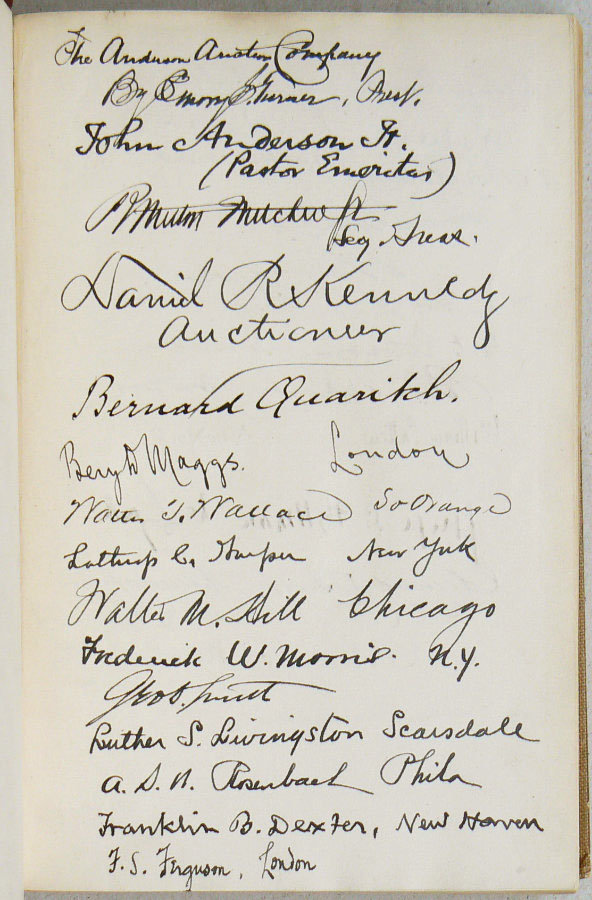 The Anderson Auction Company
By Emory S. Turner, Prest.
John Anderson Jr.
(Pastor Emeritus)
Secy. Treas.
Daniel R Kennedy
Auctioneer
Bernard Quaritch.
Maggs. London
Walter T. Wallace So Orange
Lathrop C. Harper New York
Walter M. Hill Chicago
Frederick W. Morris. N.Y.
Geo D. Smith
Luther S. Livingston Scarsdale
A. S. W. Rosenbach Phila
Franklin B. Dexter, New Haven
F. S. Ferguson, London